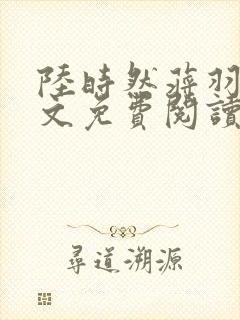 陸時然蔣羽
文免費閱讀
尋道溯源